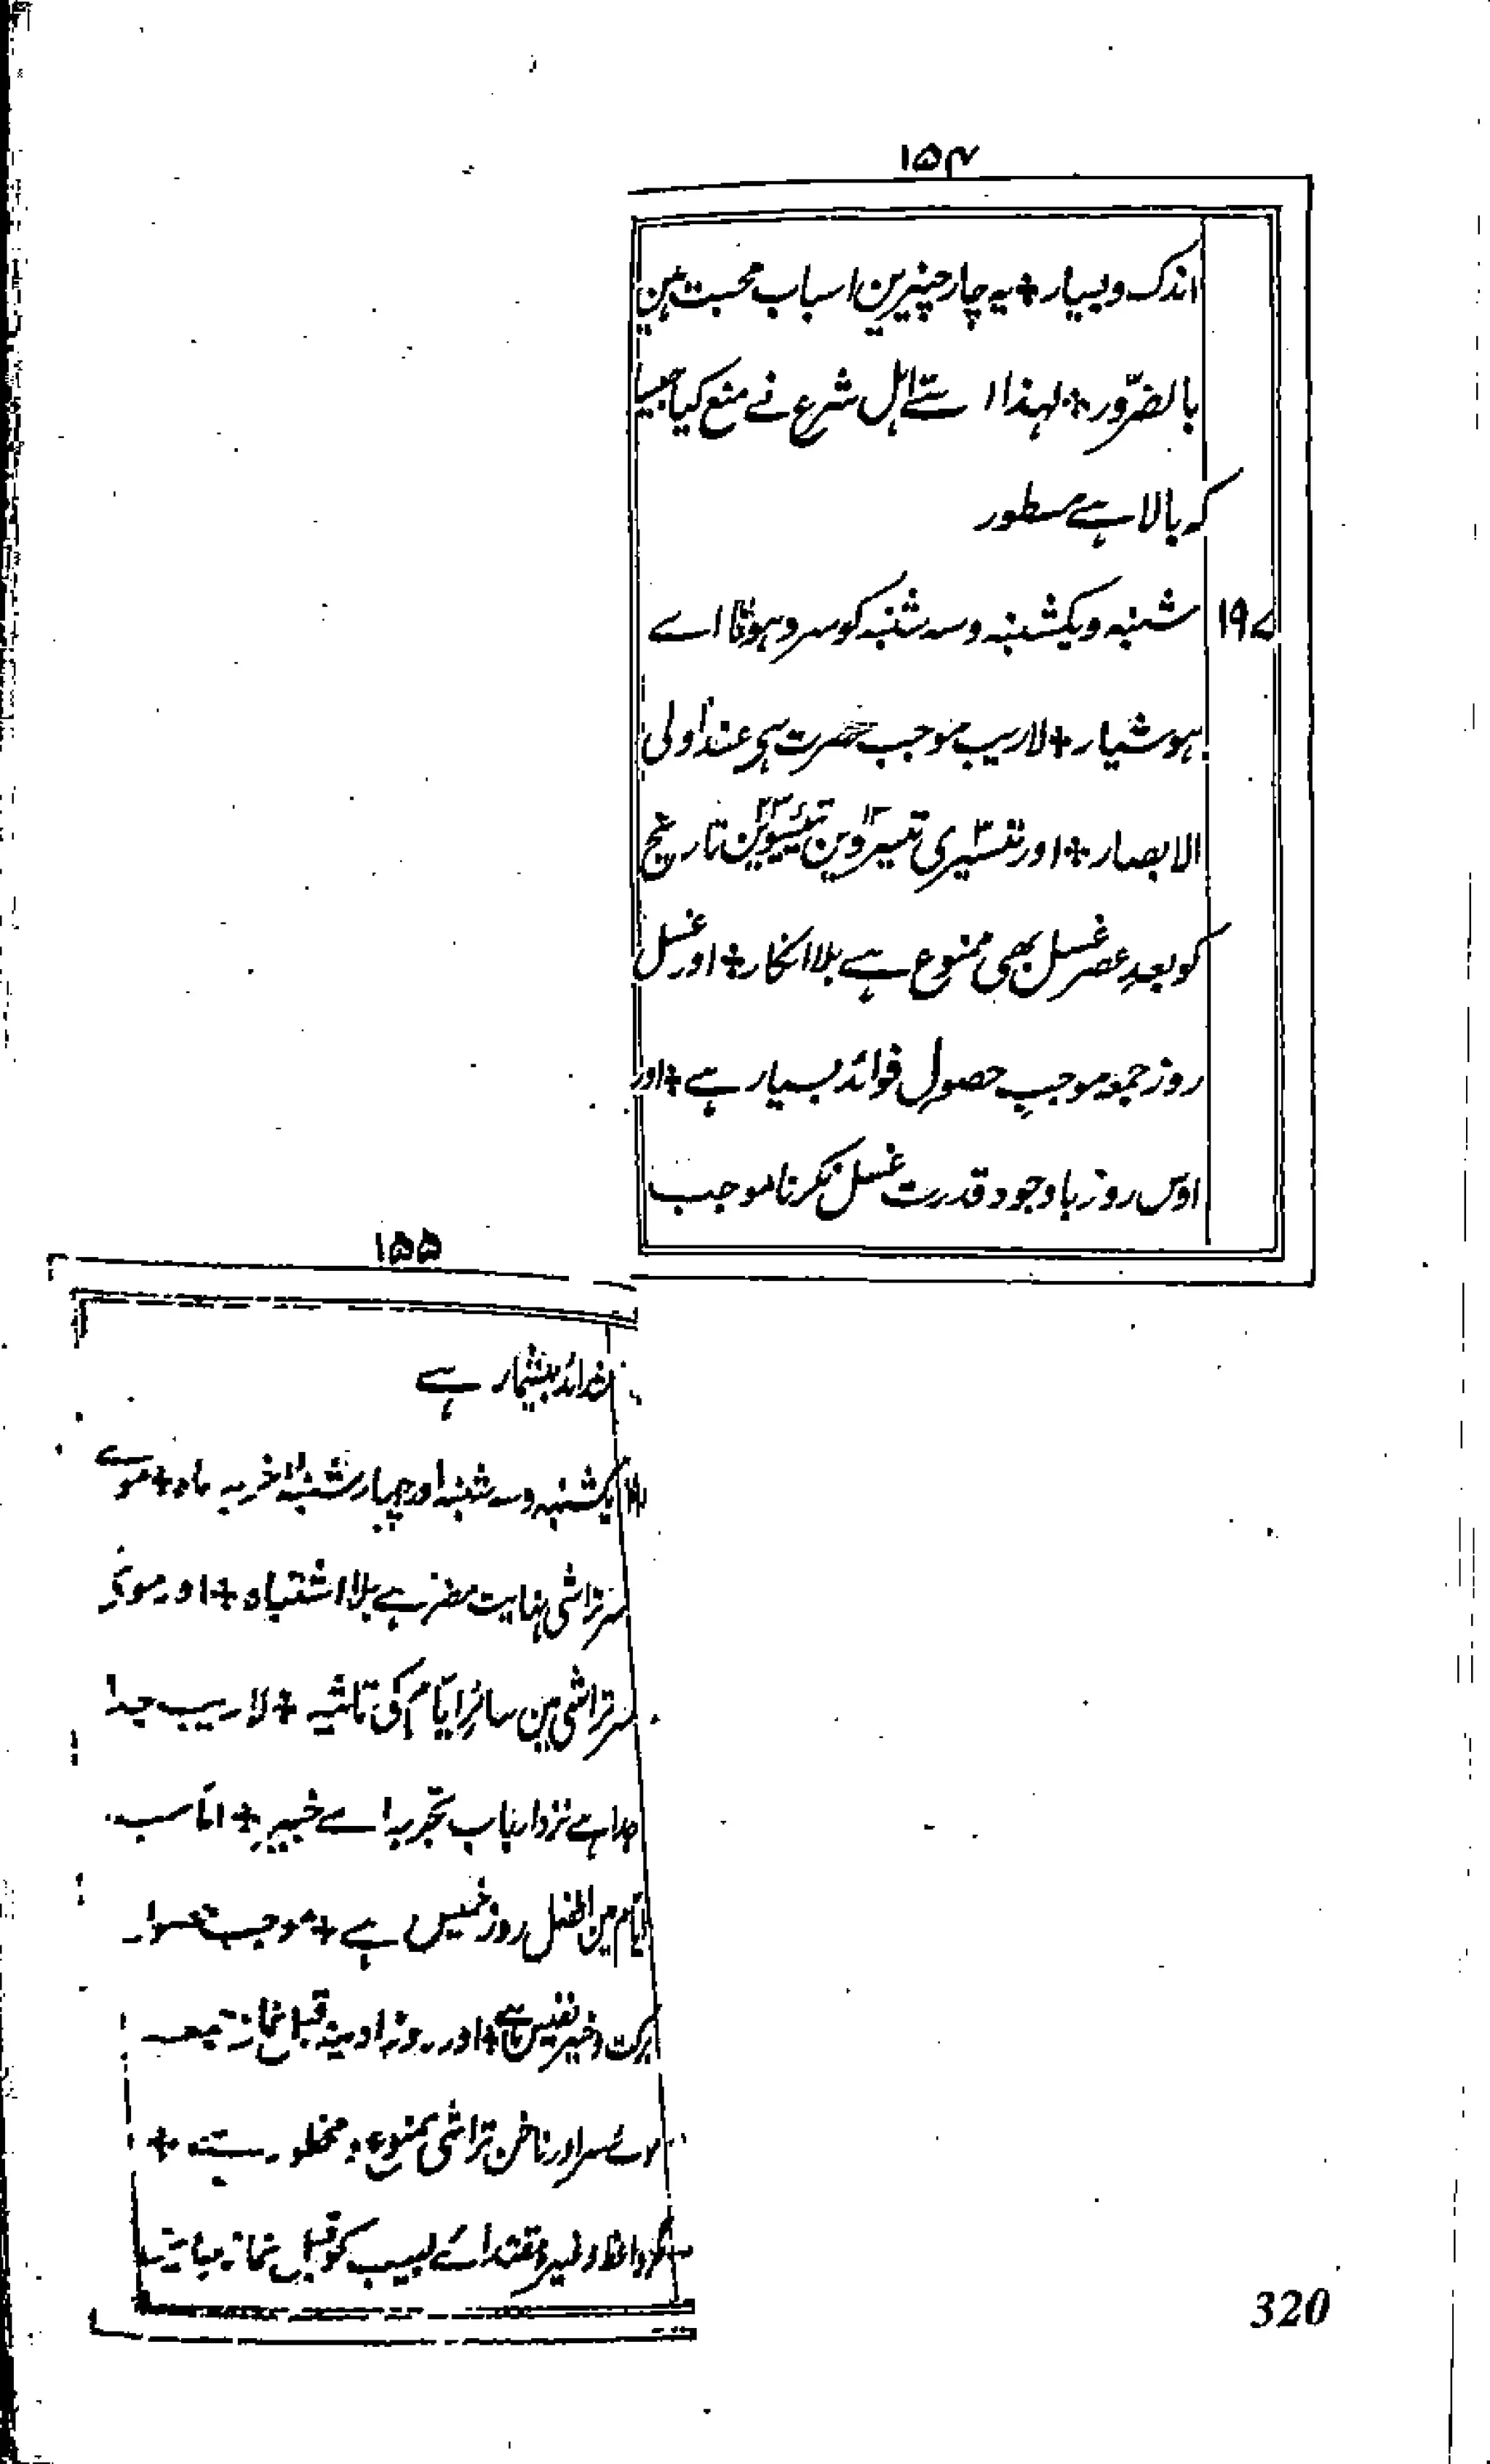 ۱۵۴
اندک و بسیار + یہ چار چیزین اسباب محبت ہین
بالضرور + لہذا اسے اہل شرع نے منع کیا جیسا
کہ بالا ہے مسطور
۱۹۷ شنبہ و یکشنبہ و سہ شنبہ کو سر دہونا اے
ہوشیار + لاریب موجب مضرت ہی عند اولی
الابصار + اور تیسری ۳ تیرہوین ۱۳ تیئیسوین ۲۳ تاریخ
کو بعدِ عصر غسل بھی ممنوع ہے بلا انکار + اور غسل
روز جمعہ موجبِ حصولِ فوائد بسیار ہے + اور
اوس روز باوجود قدرت غسل نکرنا موجب
۱۵۵
شدائد بیشمار ہے
یکشنبہ و سہ شنبہ اور چہار شنبۂ آخر یہ ماہ + موے
سر تراشی نہایت مضر ہے بلا اشتباہ + اور موے
سر تراشی مین سائر ایام کی تاثیر + لاریب جدا
جدا ہے نزد ارباب تجربہ اے خبیر + اما سب
ایام مین افضل روز خمیس ہے + موجب
برکت و خیر نفیس ہے + اور روز ادینہ قبل نماز جمعہ
موے سر اور ناخن تراشی ممنوع و محظور ہے +
مقتداے لبیب کو قبل نماز
320